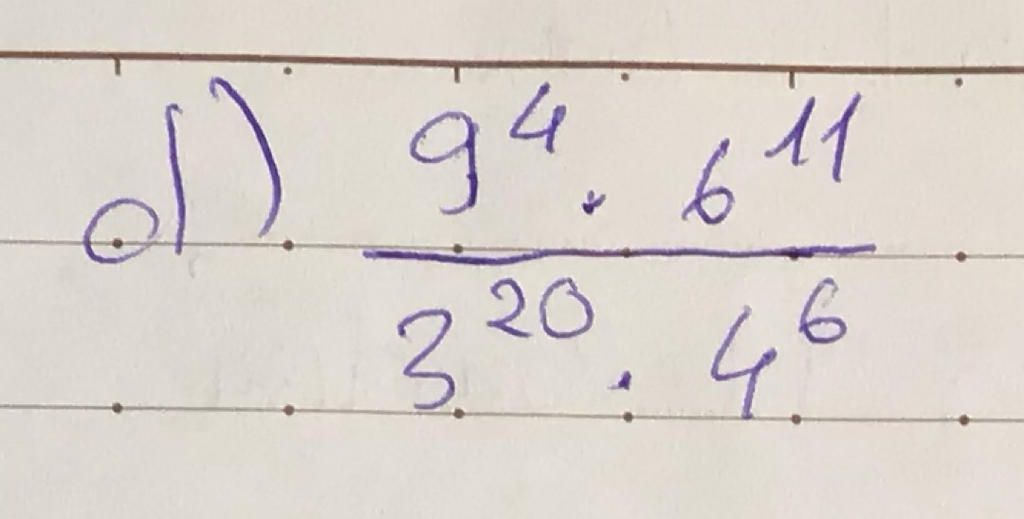 d) 9⁴ · 6¹¹
3²⁰ · 4⁶